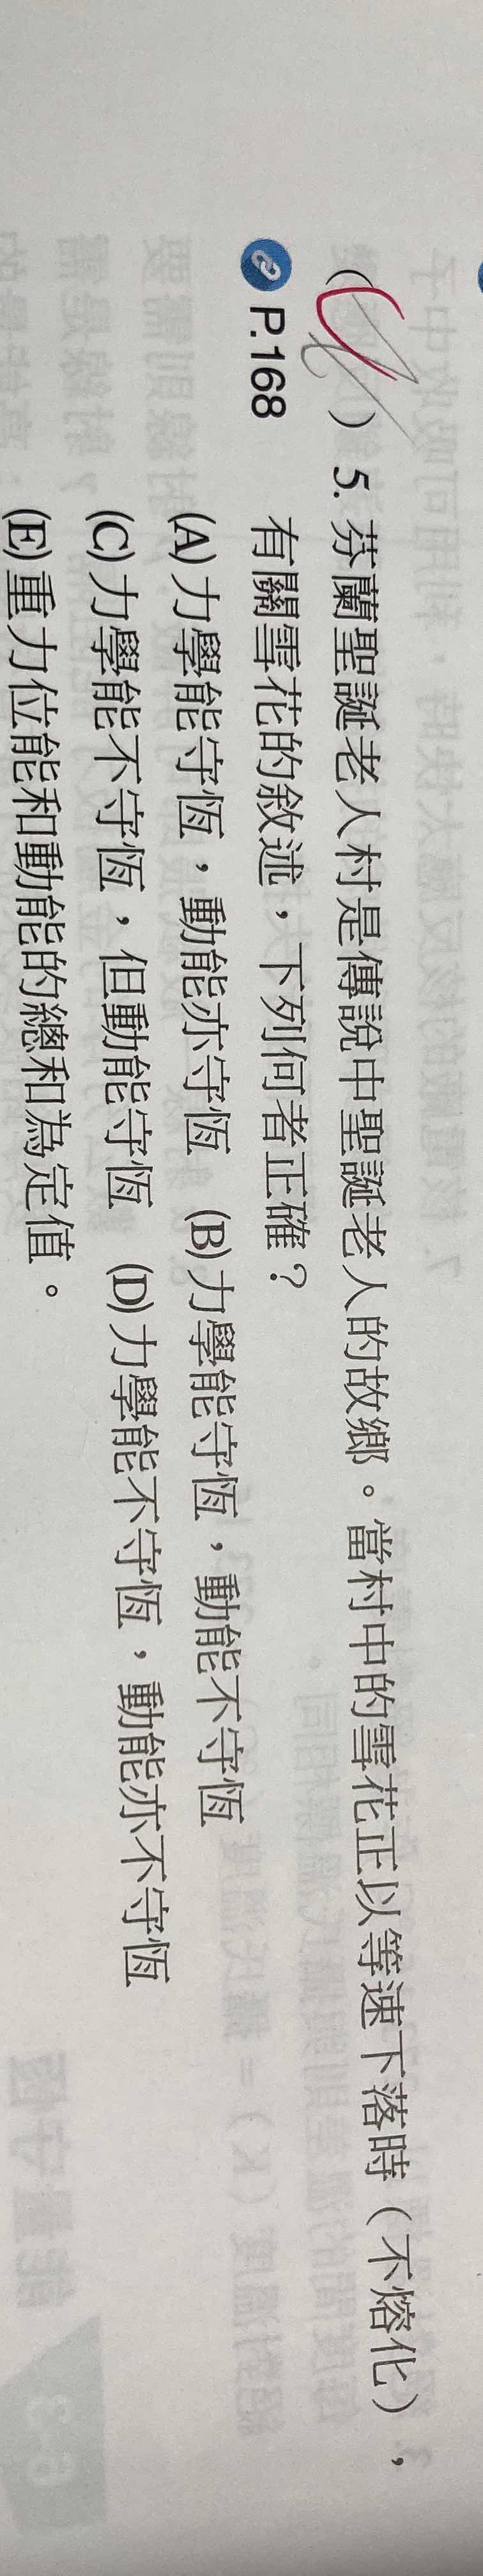 ( C ) 5. 芬蘭聖誕老人村是傳說中聖誕老人的故鄉。當村中的雪花正以等速下落時（不熔化），
P.168 有關雪花的敘述，下列何者正確？
(A)力學能守恆，動能亦守恆 (B)力學能守恆，動能不守恆
(C)力學能不守恆，但動能守恆 (D)力學能不守恆，動能亦不守恆
(E)重力位能和動能的總和為定值。